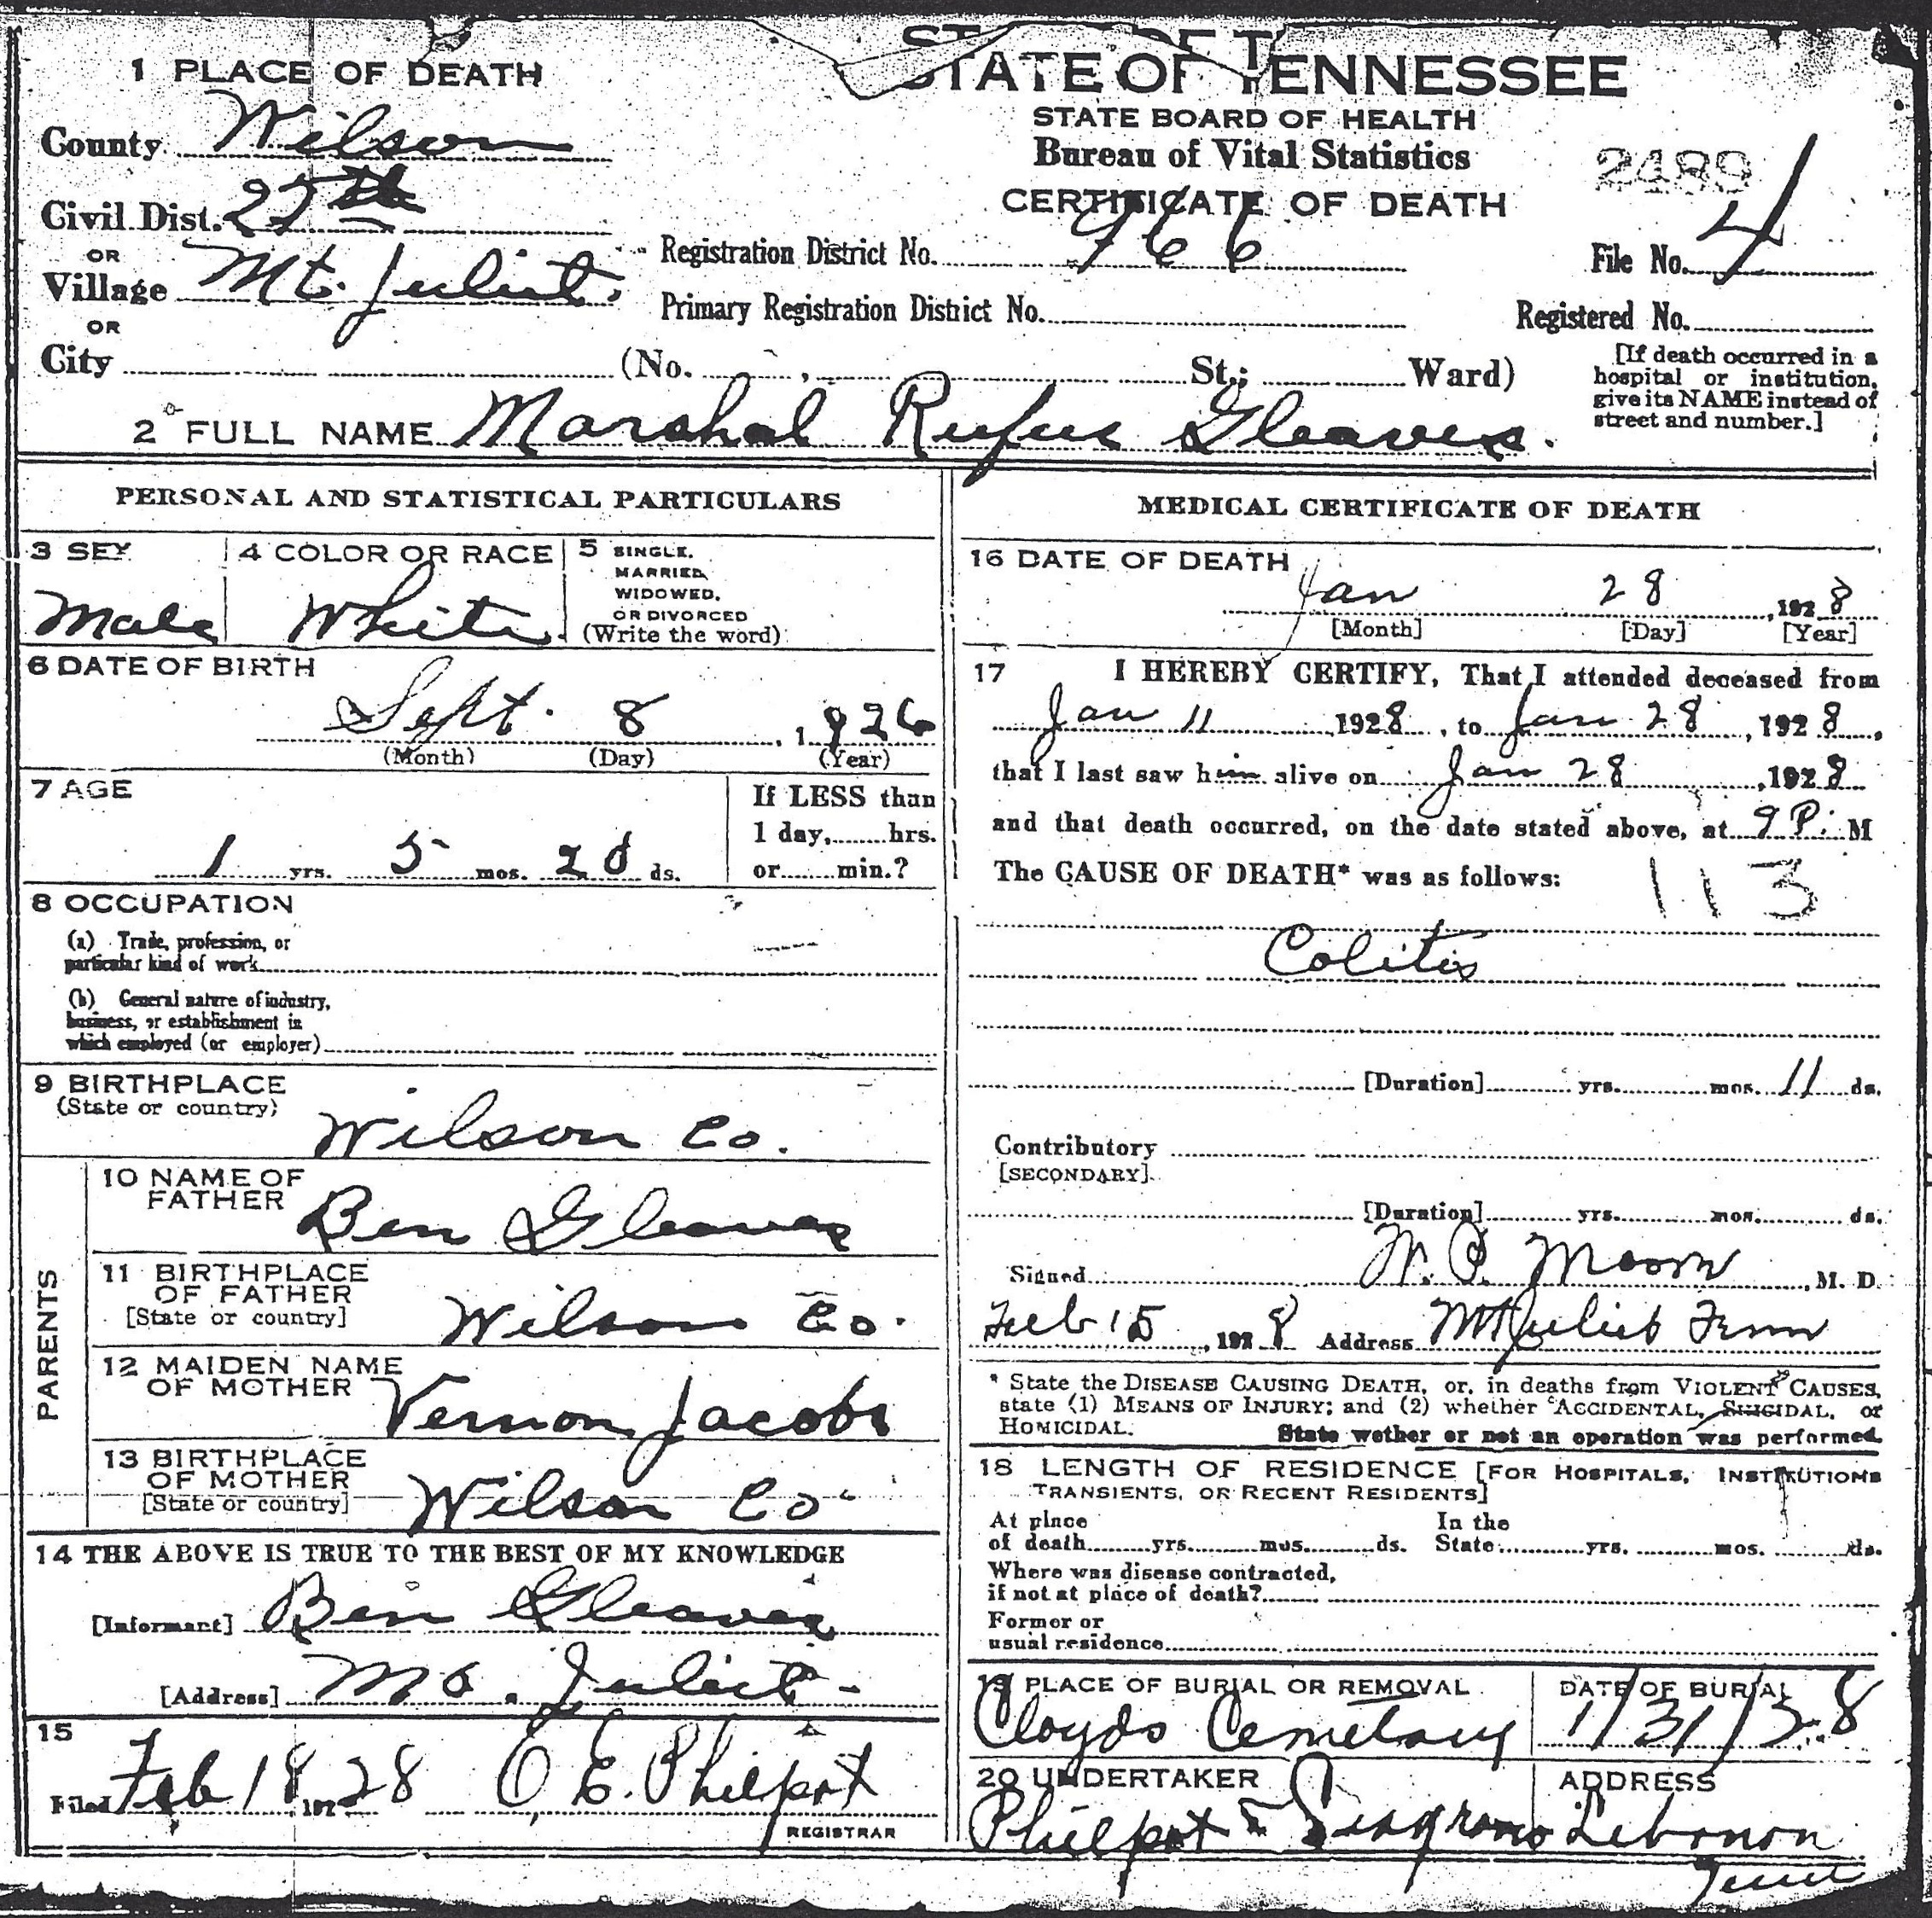 STATE OF TENNESSEE
STATE BOARD OF HEALTH
Bureau of Vital Statistics
CERTIFICATE OF DEATH
1 PLACE OF DEATH
County Wilson
Civil Dist. 25th
OR
Village Mt. Juliet.
OR
City (No. , St.; Ward)
2489
Registration District No. 966
File No. 4
Primary Registration District No.
Registered No.
[If death occurred in a
hospital or institution,
give its NAME instead of
street and number.]
2 FULL NAME Marshal Rufus Gleaves.
PERSONAL AND STATISTICAL PARTICULARS
3 SEX
Male
4 COLOR OR RACE
White.
5 SINGLE,
MARRIED,
WIDOWED,
OR DIVORCED
(Write the word)
6 DATE OF BIRTH
Sept. 8, 1926
(Month) (Day) (Year)
7 AGE
1 yrs. 5 mos. 20 ds.
If LESS than
1 day, hrs.
or min.?
8 OCCUPATION
(a) Trade, profession, or
particular kind of work
(b) General nature of industry,
business, or establishment in
which employed (or employer)
9 BIRTHPLACE
(State or country)
Wilson Co.
PARENTS
10 NAME OF
FATHER
Ben Gleaves
11 BIRTHPLACE
OF FATHER
[State or country]
Wilson Co.
12 MAIDEN NAME
OF MOTHER
Vernon Jacobs
13 BIRTHPLACE
OF MOTHER
[State or country]
Wilson Co
14 THE ABOVE IS TRUE TO THE BEST OF MY KNOWLEDGE
[Informant] Ben Gleaves
[Address] Juliet
15
Filed Feb 18 192 28 O. E. Philpot
REGISTRAR
MEDICAL CERTIFICATE OF DEATH
16 DATE OF DEATH
Jan 28, 1928
[Month] [Day] [Year]
17 I HEREBY CERTIFY, That I attended deceased from
Jan 11 1928, to Jan 28, 1928,
that I last saw him alive on Jan 28, 1928
and that death occurred, on the date stated above, at 9 P. M
The CAUSE OF DEATH* was as follows:
113
Colitis
[Duration] yrs. mos. 11 ds.
Contributory
[SECONDARY]
[Duration] yrs. mos. ds.
Signed W. P. Moore, M. D.
Feb 15, 1928 Address Mt Juliet Tenn
* State the DISEASE CAUSING DEATH, or, in deaths from VIOLENT CAUSES,
state (1) MEANS OF INJURY; and (2) whether ACCIDENTAL, SUICIDAL, or
HOMICIDAL. State wether or not an operation was performed.
18 LENGTH OF RESIDENCE [FOR HOSPITALS, INSTITUTIONS
TRANSIENTS, OR RECENT RESIDENTS]
At place
of death yrs. mos. ds.
In the
State yrs. mos. ds.
Where was disease contracted,
if not at place of death?
Former or
usual residence
19 PLACE OF BURIAL OR REMOVAL
Cloyds Cemetary
DATE OF BURIAL
1/31/28
20 UNDERTAKER
Philpot &
ADDRESS
Lebanon
Tenn